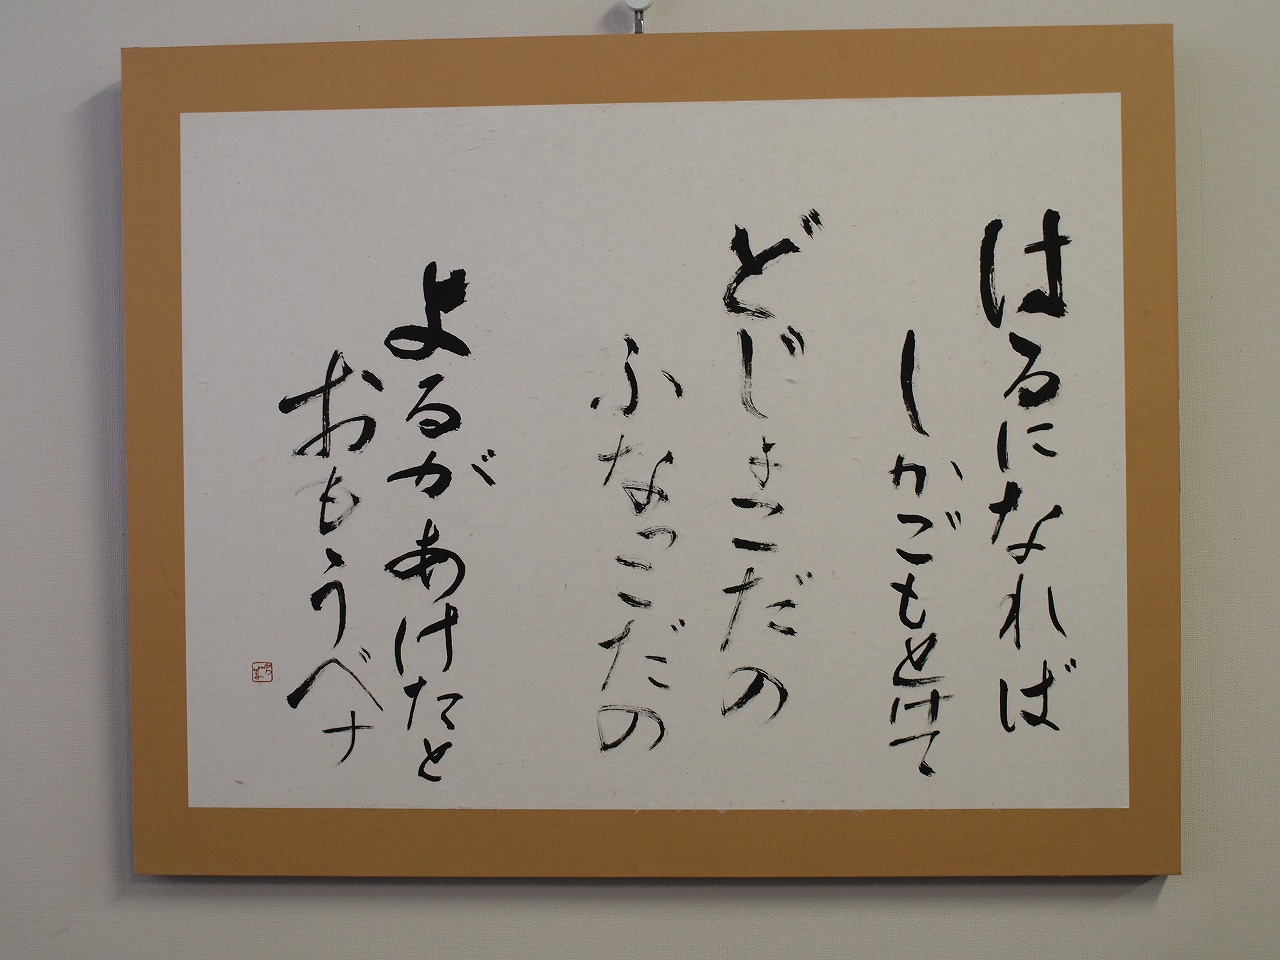 はるになれば
しかごもとけて
どじょこだの
ふなっこだの
よるがあけたと
おもうべナ